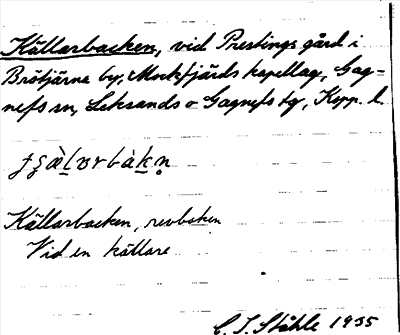 Källarbacken, vid Prestings gård i
Brötjärna by, Mockfjärds kapellag, Gag-
nefs sn, Leksands o Gagnefs tg, Kopp. l.
Källarbacken, revbacken
Vid en källare
C. I. Ståhle 1935